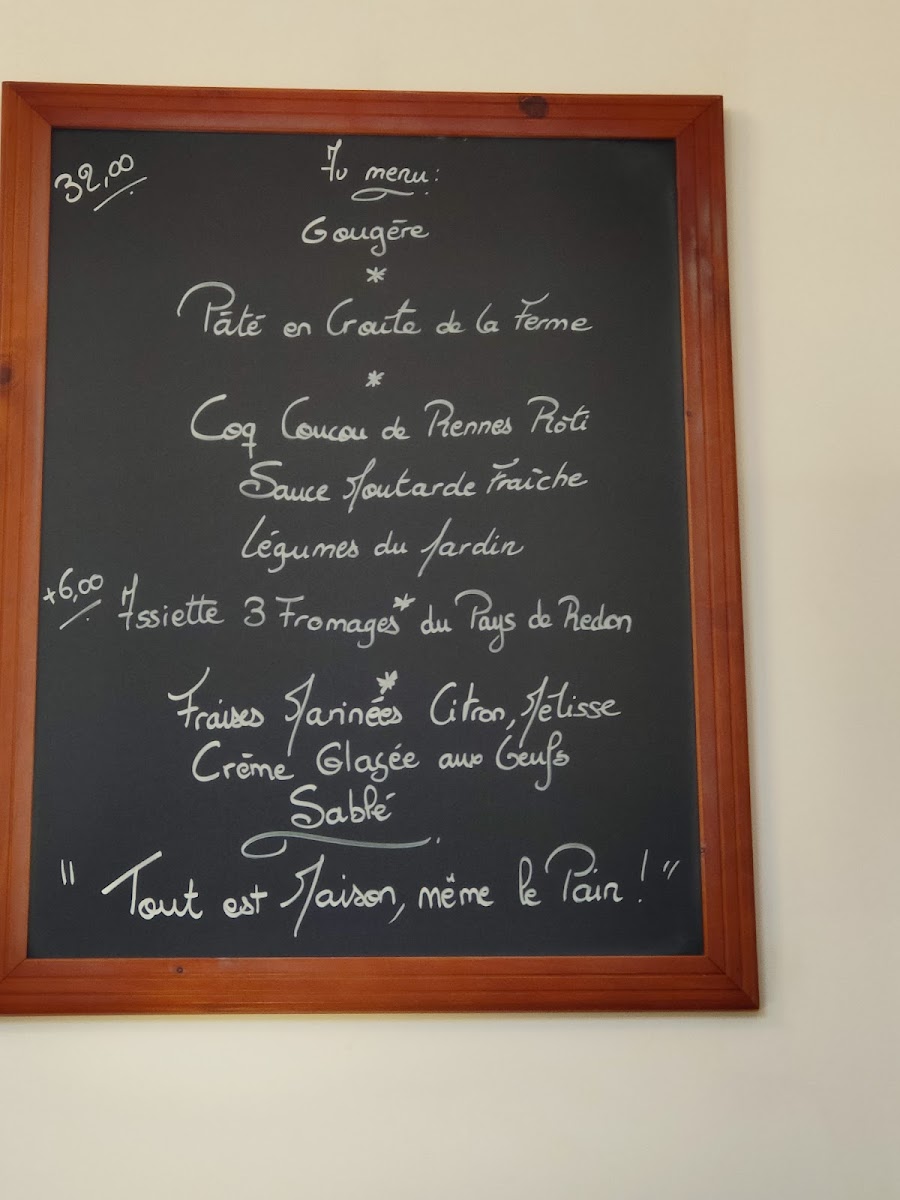 32,00
Au menu:
Gougère
*
Pâté en Croûte de la Ferme
*
Coq Coucou de Rennes Rôti
Sauce Moutarde Fraîche
Légumes du Jardin
*
+6,00 Assiette 3 Fromages du Pays de Redon
*
Fraises Marinées Citron, Mélisse
Crème Glacée aux Oeufs
Sablé
" Tout est Maison, même le Pain ! "